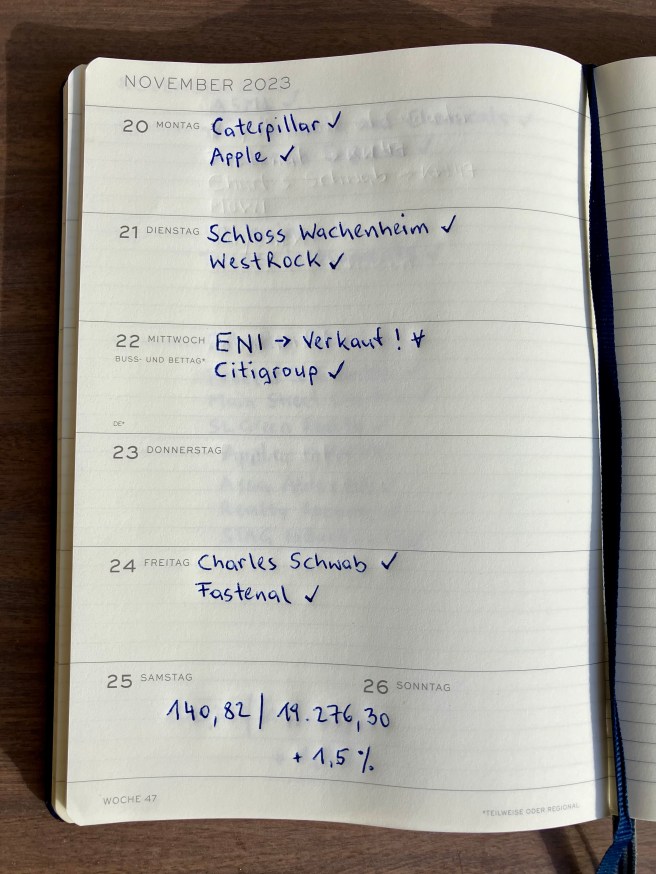 NOVEMBER 2023
20 MONTAG Caterpillar ✓
Apple ✓
21 DIENSTAG Schloss Wachenheim ✓
WestRock ✓
22 MITTWOCH ENI → Verkauf! ✓
BUSS- UND BETTAG* Citigroup ✓
DE*
23 DONNERSTAG
24 FREITAG Charles Schwab ✓
Fastenal ✓
25 SAMSTAG
26 SONNTAG
140,82 | 19.276,30
+ 1,5 %
WOCHE 47
*TEILWEISE ODER REGIONAL